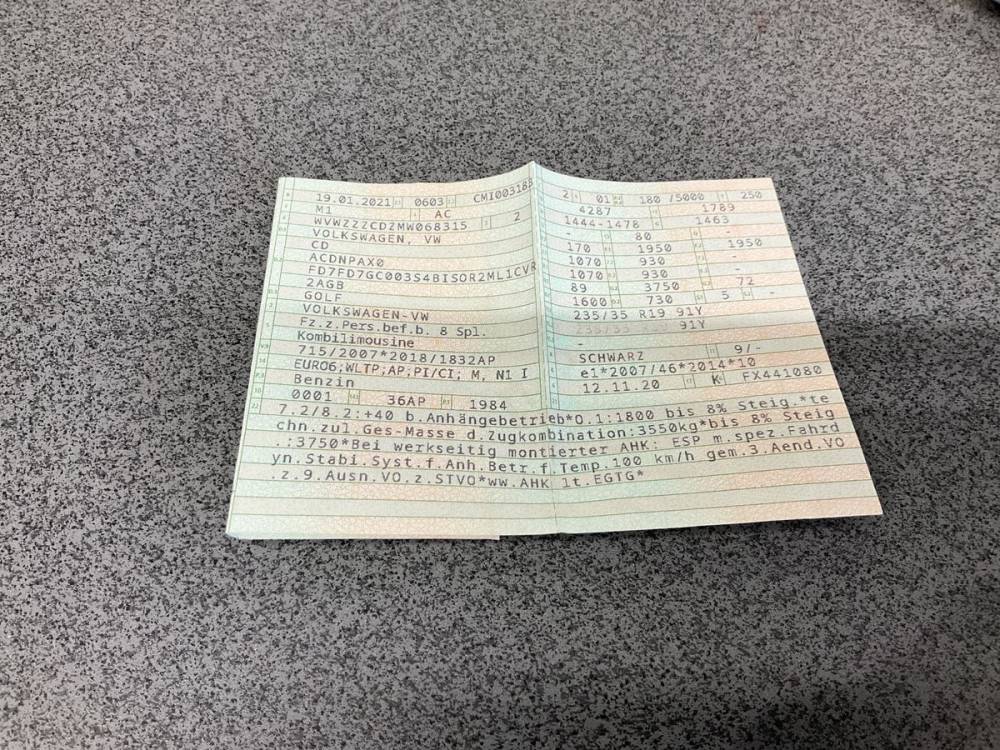 19.01.2021 0603 CMI003183
M1 AC
WVWZZZCDZMW068315 2
VOLKSWAGEN, VW
CD
ACDNPAX0
FD7FD7GC003S4BISOR2ML1CVR
2AGB
GOLF
VOLKSWAGEN-VW
Fz.z.Pers.bef.b. 8 Spl.
Kombilimousine
715/2007*2018/1832AP
EURO6;WLTP;AP;PI/CI; M, N1 I
Benzin
0001 36AP 1984
2 01 180 /5000 250
4287 1789
1444-1478 1463
- 80 -
170 1950 1950
1070 930 -
1070 930 -
89 3750 72
1600 730 5 -
235/35 R19 91Y
235/35 R19 91Y
-
SCHWARZ 9/-
e1*2007/46*2014*10
12.11.20 K FX441080
7.2/8.2:+40 b.Anhängebetrieb*O.1:1800 bis 8% Steig.*te
chn.zul.Ges-Masse d.Zugkombination:3550kg*bis 8% Steig
.:3750*Bei werkseitig montierter AHK: ESP m.spez.Fahrd
yn.Stabi.Syst.f.Anh.Betr.f.Temp.100 km/h gem.3.Aend.VO
.z.9.Ausn.VO.z.STVO*ww.AHK lt.EGTG*